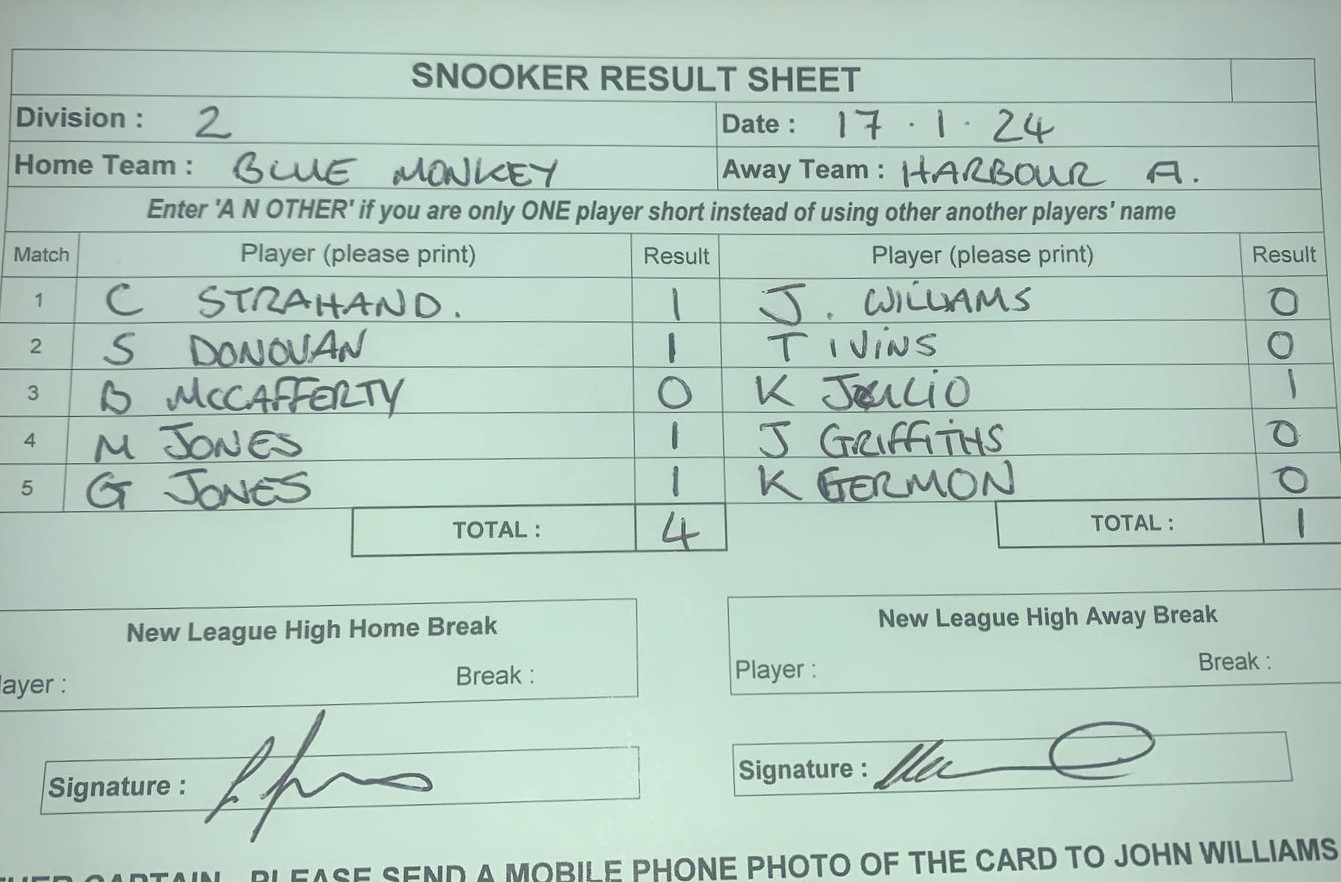 SNOOKER RESULT SHEET
Division : 2 Date : 17 . 1 . 24
Home Team : BLUE MONKEY Away Team : HARBOUR A.
Enter 'A N OTHER' if you are only ONE player short instead of using other another players' name
Match Player (please print) Result Player (please print) Result
1 C STRAHAND. 1 J. WILLIAMS 0
2 S DONOVAN 1 T IVINS 0
3 B McCAFFERTY 0 K 1
4 M JONES 1 J GRIFFITHS 0
5 G JONES 1 K GERMON 0
TOTAL : 4 TOTAL : 1
New League High Home Break New League High Away Break
layer : Break : Player : Break :
Signature : Signature :
CAPTAIN PLEASE SEND A MOBILE PHONE PHOTO OF THE CARD TO JOHN WILLIAMS